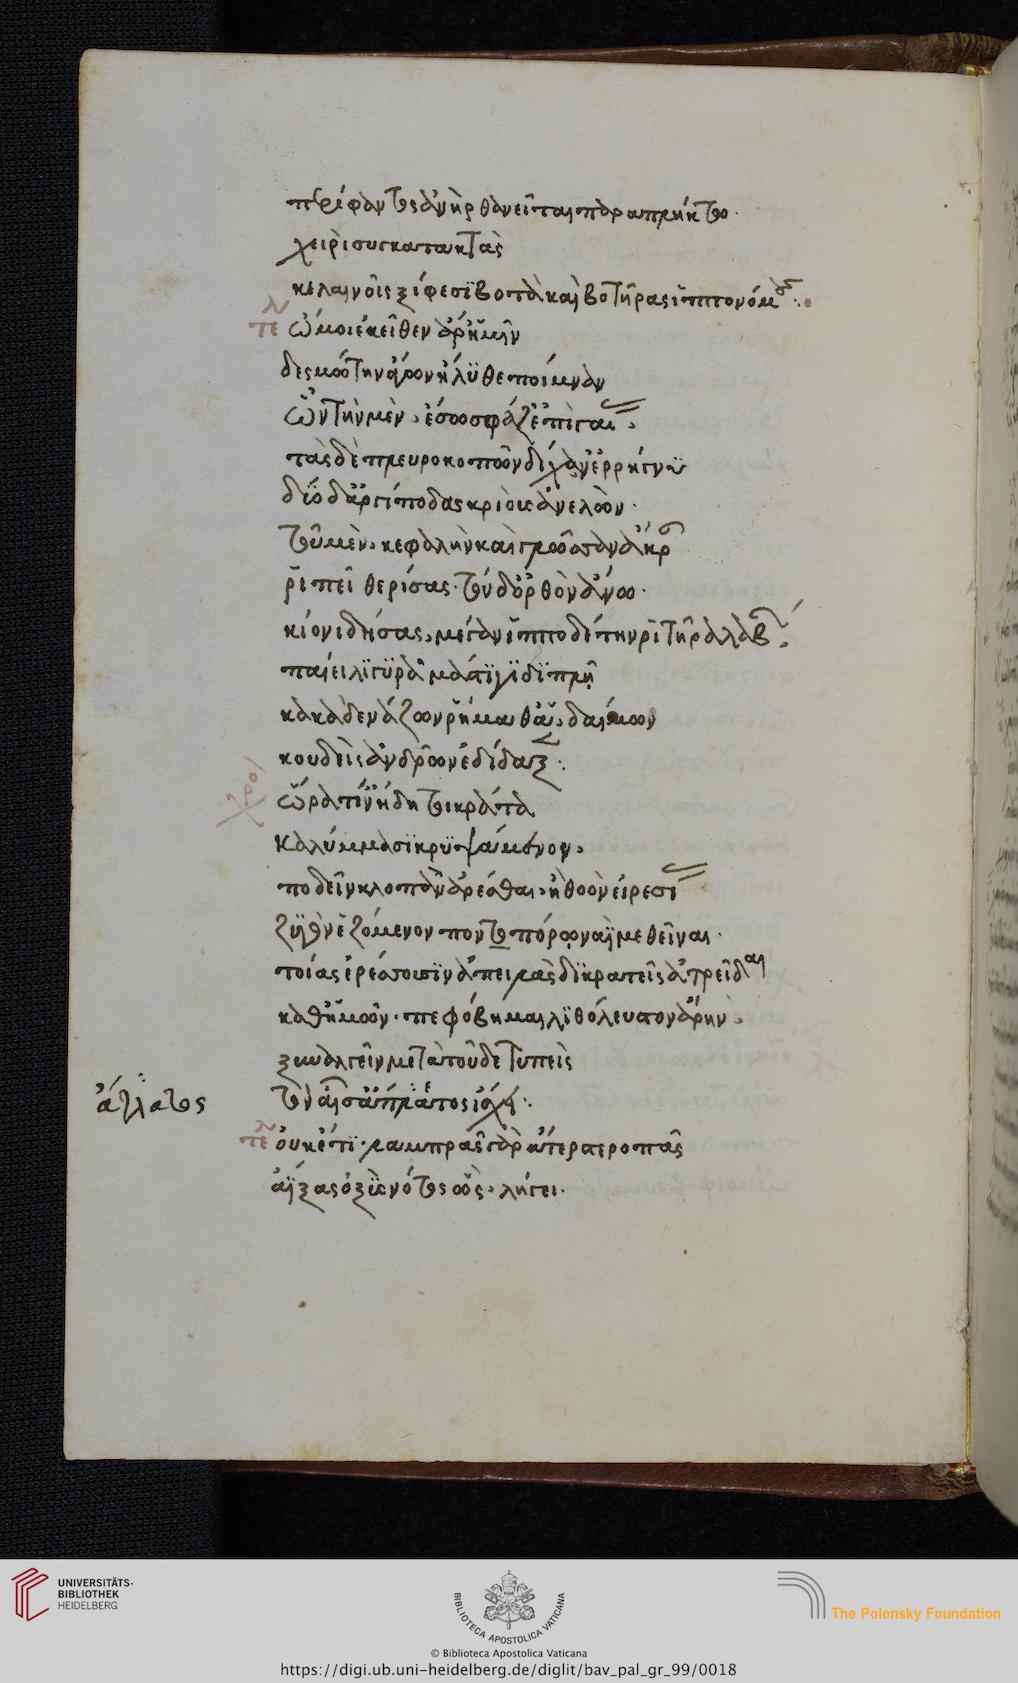 περίφαντος ἀνὴρ θανεῖται παραπλήκτω·
χειρὶ συγκατακτὰς
κελαινοῖς ξίφεσι βοτὰ καὶ βοτῆρας ἱππονόμους·
τε ὤμοι ἐκεῖθεν ἄρ ἡμῖν
δεσμῶτιν ἄγων ἤλυθε ποίμναν
ὧν τὴν μὲν, ἔσω σφάζ ἐπὶ γαίας,
τὰς δὲ πλευροκοπῶν δίχ ἀνερρήγνυ
δύο δ ἀργίποδας κριοὺς ἀνελών·
τοῦ μὲν, κεφαλὴν καὶ γλῶσσαν ἄκραν
ῥιπεῖ θερίσας· τὸν δ ὀρθὸν ἄνω·
κίονι δήσας, μέγαν ἱπποδέτην ῥυτῆρα λαβών·
παίει λιγυρᾶ μάστιγι διπλῆ
κακὰ δεννάζων ῥήμαθ ἃ, δαίμων
κοὐδεὶς ἀνδρῶν ἐδίδαξεν·
χρο ὥρα τιν ἤδη τοι κρᾶτα
καλύμμασι κρυψάμενον,
ποδεῖν κλοπὰν ἀρέσθαι, ἢ θοὸν εἰρεσίας
ζυγὸν ἑζόμενον ποντοπόρῳ ναῒ μεθεῖναι·
τοίας ἐρέσσουσιν ἀπειλὰς δικρατεῖς ἀτρεῖδαι
καθ ἡμῶν· πεφόβημαι λιθόλευστον ἄρην
ξυναλγεῖν μετὰ τοῦδε τυπεὶς
ἄπλατος
τὸν αἶσ ἄπλατος ἴσχει·
τε οὐκ έτι· λαμπρᾶς γὰρ ἄτερ στεροπᾶς
ἀΐξας ὀξὺς νότος ὣς, λήγει·
UNIVERSITÄTS-
BIBLIOTHEK
HEIDELBERG
BIBLIOTECA APOSTOLICA VATICANA
The Polonsky Foundation
© Biblioteca Apostolica Vaticana
https://digi.ub.uni-heidelberg.de/diglit/bav_pal_gr_99/0018